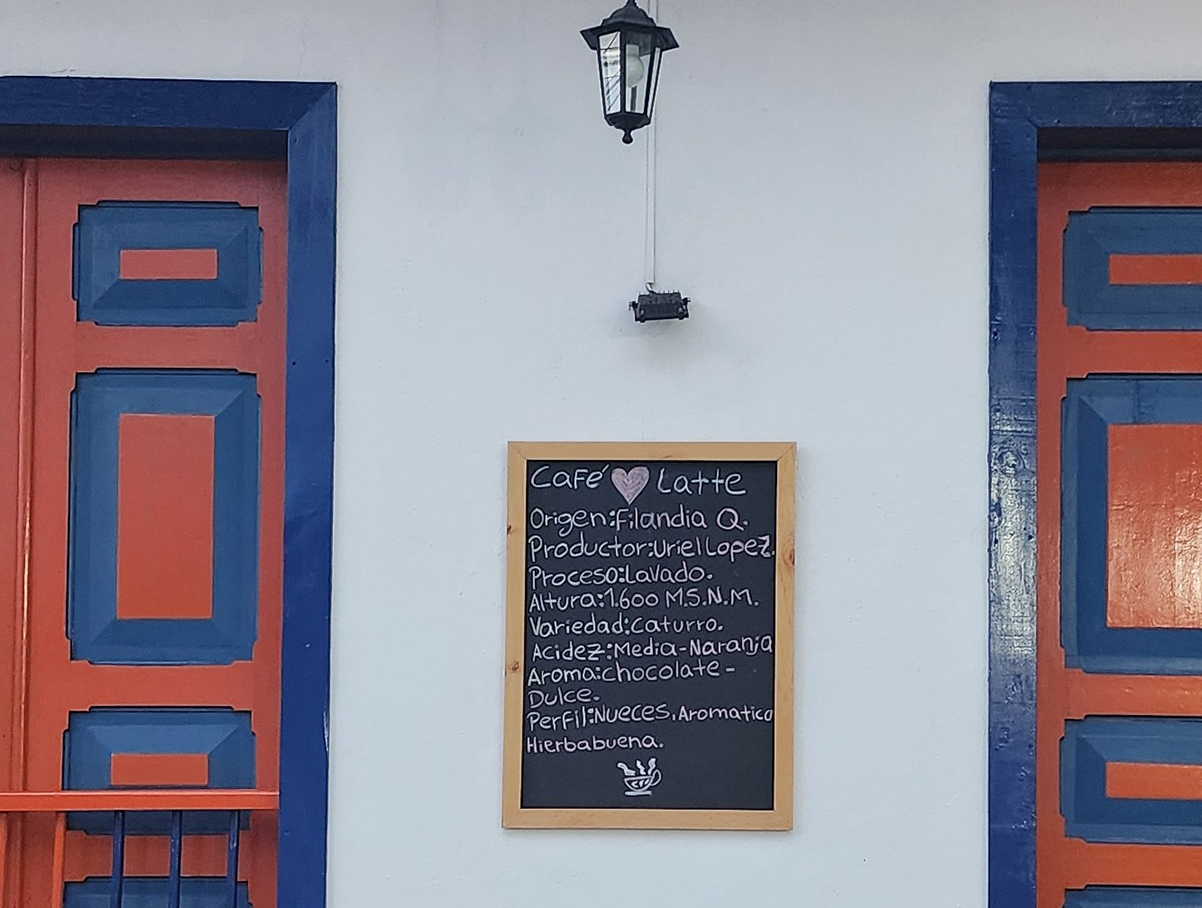 Café Latte
Origen:Filandia Q.
Productor:Uriel Lopez.
Proceso:Lavado.
Altura:1.600 M.S.N.M.
Variedad:Caturro.
Acidez:Media-Naranja
Aroma:chocolate-
Dulce.
Perfil:Nueces.Aromatico
Hierbabuena.